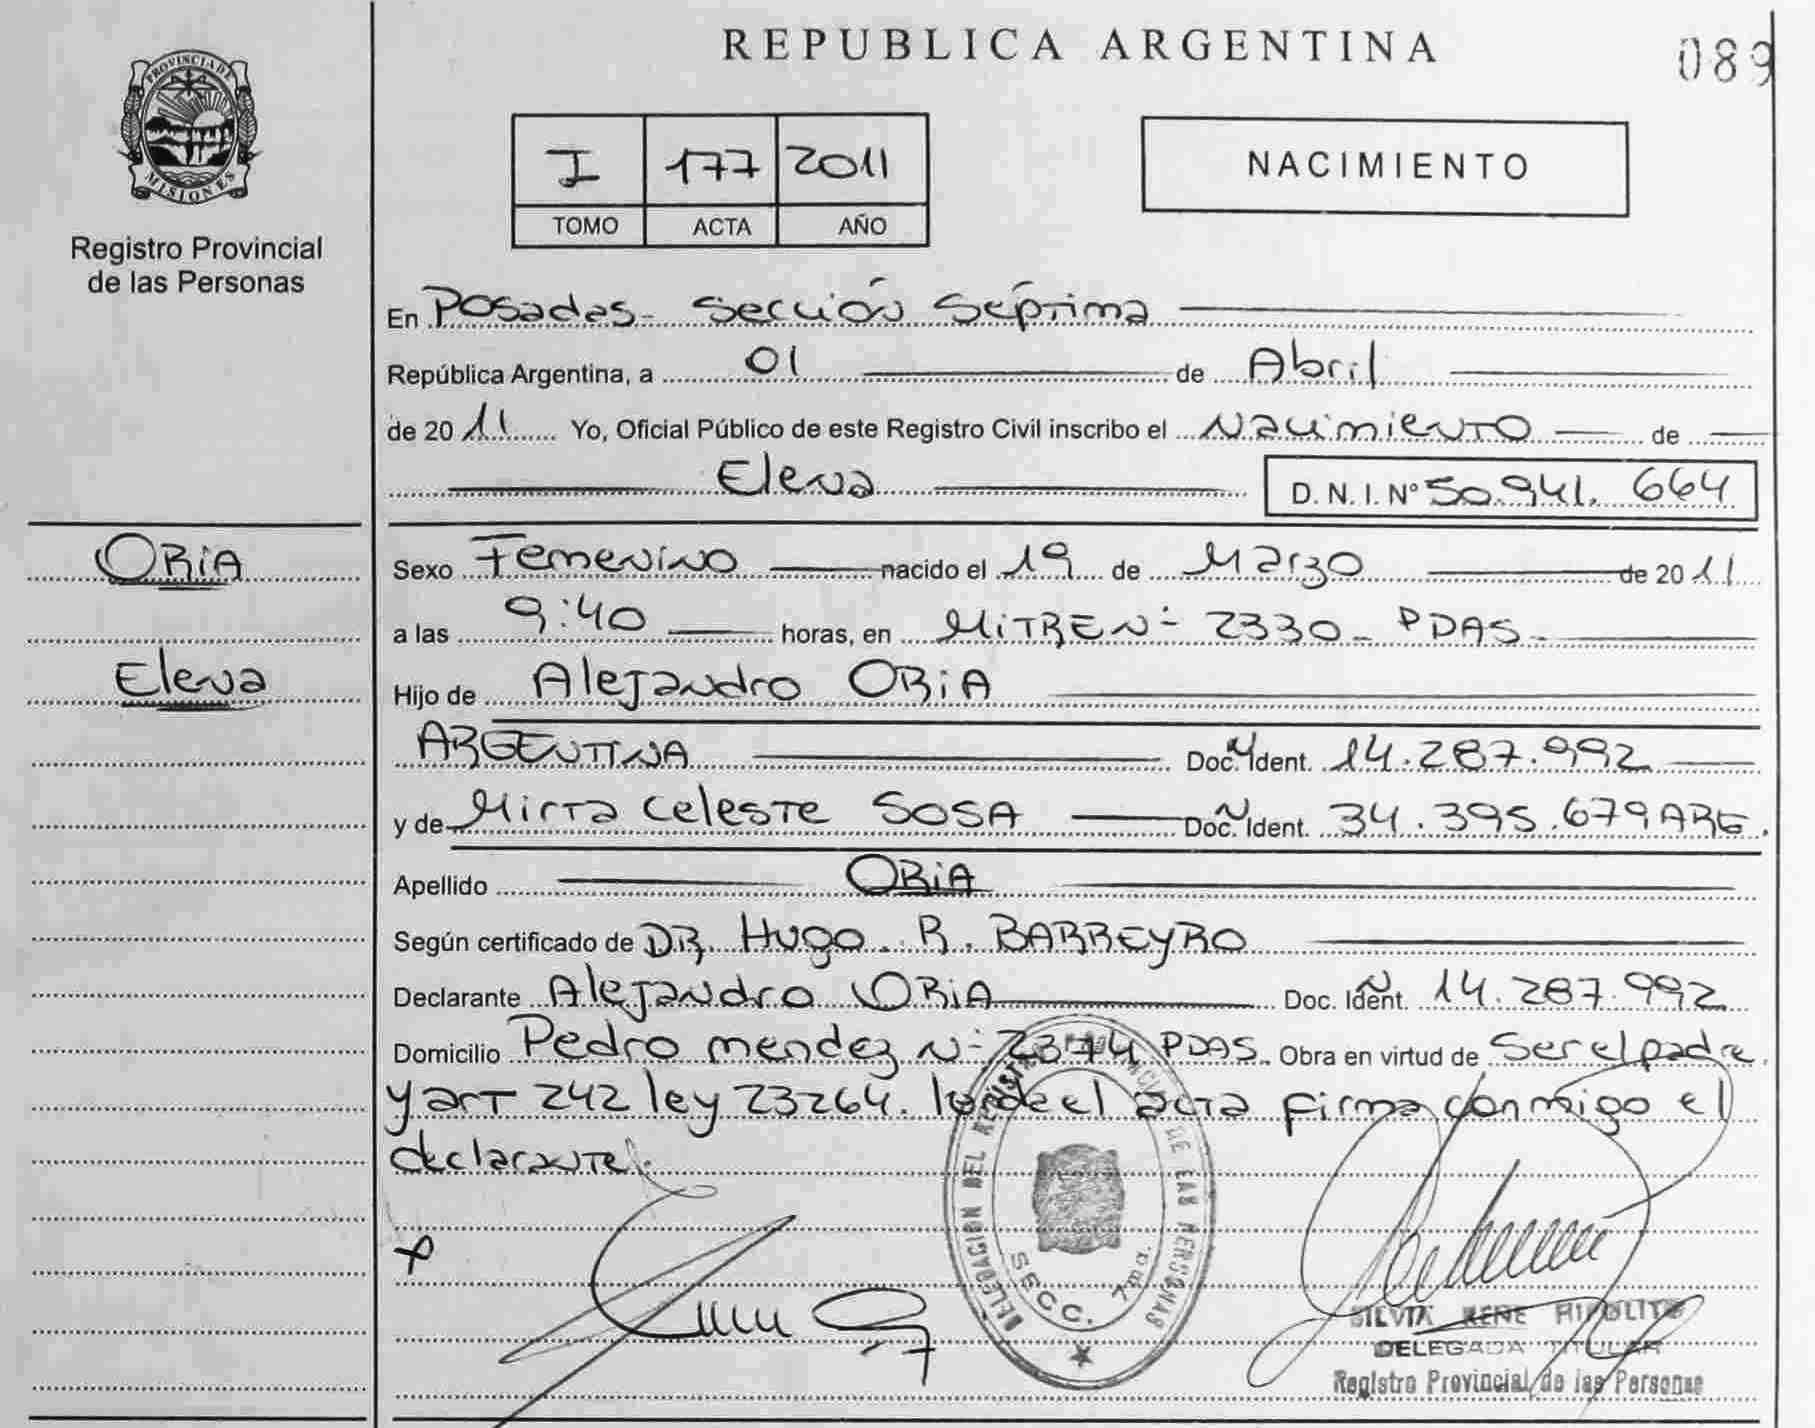 PROVINCIA DE
MISIONES
Registro Provincial
de las Personas
REPUBLICA ARGENTINA
089
I 177 2011
TOMO ACTA AÑO
NACIMIENTO
En Posadas- Sección Séptima
República Argentina, a 01 de Abril
de 2011 Yo, Oficial Público de este Registro Civil inscribo el Nacimiento de
Elena D.N.I. Nº 50.941.664
ORiA
Elena
Sexo Femenino nacido el 19 de Marzo de 2011
a las 9:40 horas, en MiTRE Nº 2330- PDAS-
Hijo de Alejandro ORiA
ARGENTINA Doc. Ident. 14.287.992
y de Mirta Celeste SOSA Doc. Ident. 34.395.679 ARG.
Apellido ORiA
Según certificado de DR. Hugo. R. BARREYRO
Declarante Alejandro ORiA Doc. Ident. 14.287.992
Domicilio Pedro mendez Nº 2374 PDAS. Obra en virtud de Ser el padre
y art 242 ley 23264. leída el acta firma conmigo el
declarante.
DELEGACION DEL REGISTRO PROVINCIAL DE LAS PERSONAS
SECC. 7ma.
SILVIA RENE HIPOLITO
DELEGADA TITULAR
Registro Provincial de las Personas